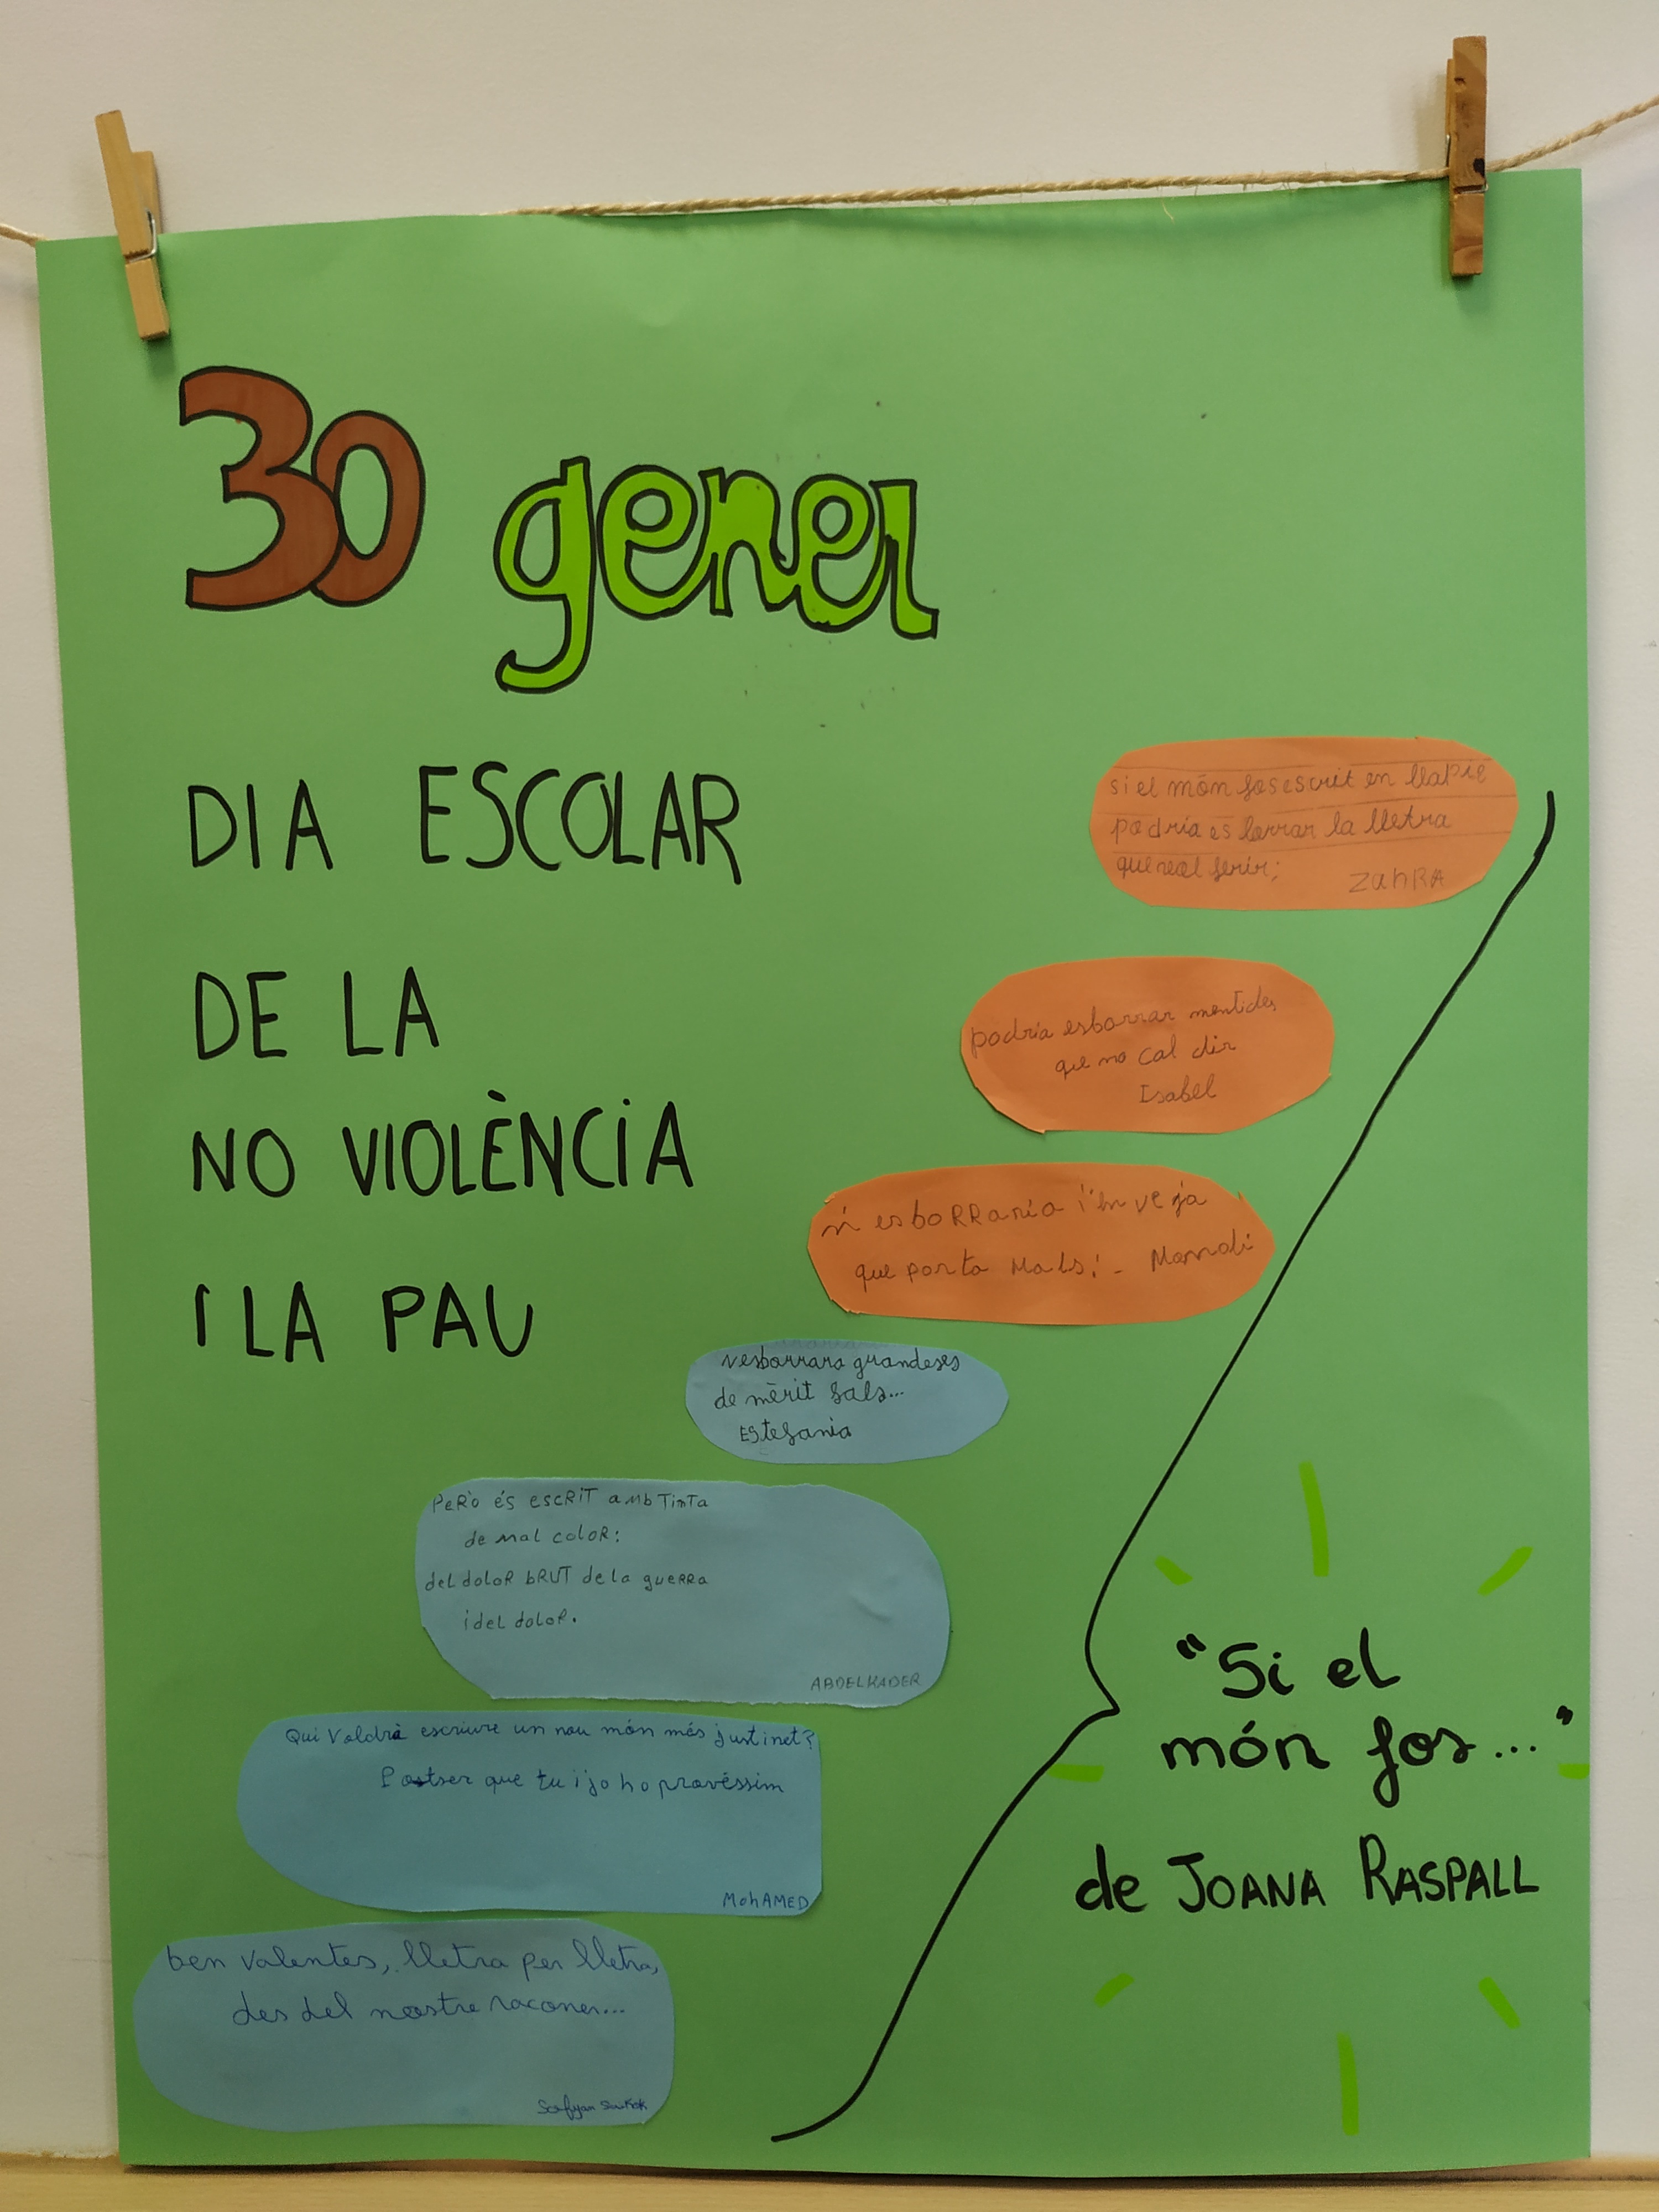 30 gener
DIA ESCOLAR
DE LA
NO VIOLÈNCIA
I LA PAU
si el món fos escrit en llapis
podría es borrar la lletra
que veal ferir;
ZAhRA
podría esborrar mentides
que no cal dir
Isabel
n' esboRRaria l'enveja
que porta Mals! -
n'esborrara grandeses
de mèrit fals...
EStefania
PeRò és escRiT aMb TinTa
de mal coloR:
del doloR bRUT de la gueRRa
i del doloR.
ABDELKADER
Qui Voldrà escriure un nou món més just i net?
Potser que tu i jo ho provéssim
MohAMED
ben valentes, lletra per lletra,
des del nostre raconer...
Soufyan
"Si el
món fos..."
de JOANA RASPALL